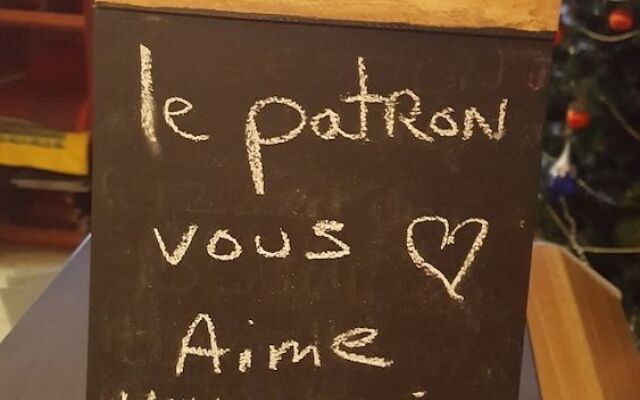 le patRon
vous ♥
Aime